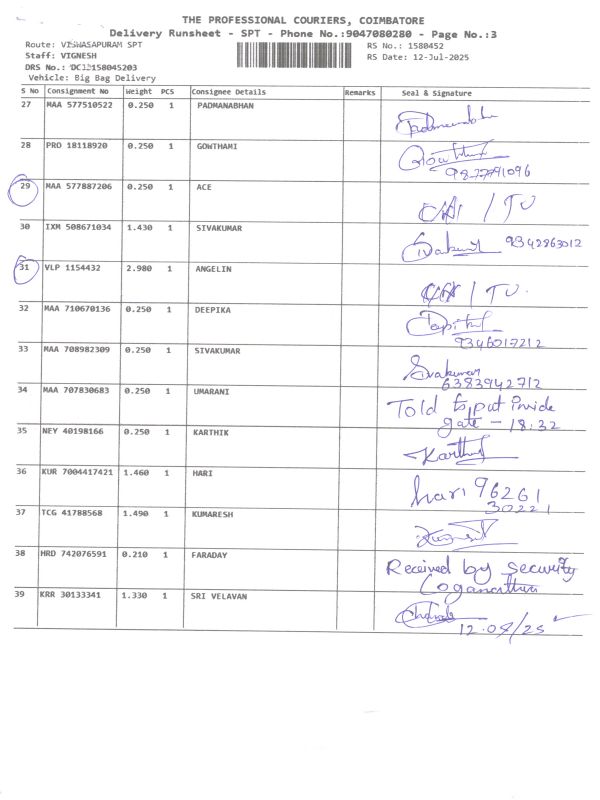 THE PROFESSIONAL COURIERS, COIMBATORE
Delivery Runsheet - SPT - Phone No.:9047080280 - Page No.:3
Route: VISWASAPURAM SPT
RS No.: 1580452
Staff: VIGNESH
RS Date: 12-Jul-2025
DRS No.: 158045203
Vehicle: Big Bag Delivery
S No Consignment No Weight PCS Consignee Details Remarks Seal & Signature
27 MAA 577510522 0.250 1 PADMANABHAN
28 PRO 18118920 0.250 1 GOWTHAMI
29 MAA 577887206 0.250 1 ACE
30 IXM 508671034 1.430 1 SIVAKUMAR Sivakumar 9342863012
31 VLP 1154432 2.980 1 ANGELIN
32 MAA 710670136 0.250 1 DEEPIKA
9346017212
33 MAA 708982309 0.250 1 SIVAKUMAR Sivakumar
6383942712
34 MAA 707830683 0.250 1 UMARANI Told to put inside
gate - 18:32
35 NEY 40198166 0.250 1 KARTHIK Karthik
36 KUR 7004417421 1.460 1 HARI hari 96261
30221
37 TCG 41788568 1.490 1 KUMARESH
38 HRD 742076591 0.210 1 FARADAY Received by security
39 KRR 30133341 1.330 1 SRI VELAVAN